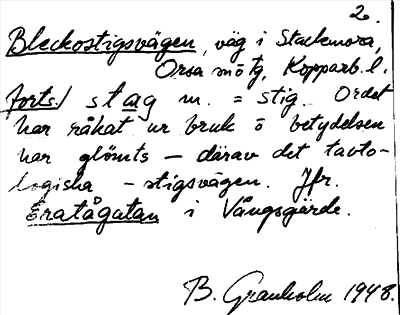 2.
Bleckostigsvägen, väg i Stackmora,
Orsa sn o tg, Kopparb. l.
forts./ stag m. = stig. Ordet
har råkat ur bruk o betydelsen
har glömts – därav det tavto-
logiska -stigsvägen. Jfr.
Eratågatan i Vångsgärde.
B. Granholm 1948.